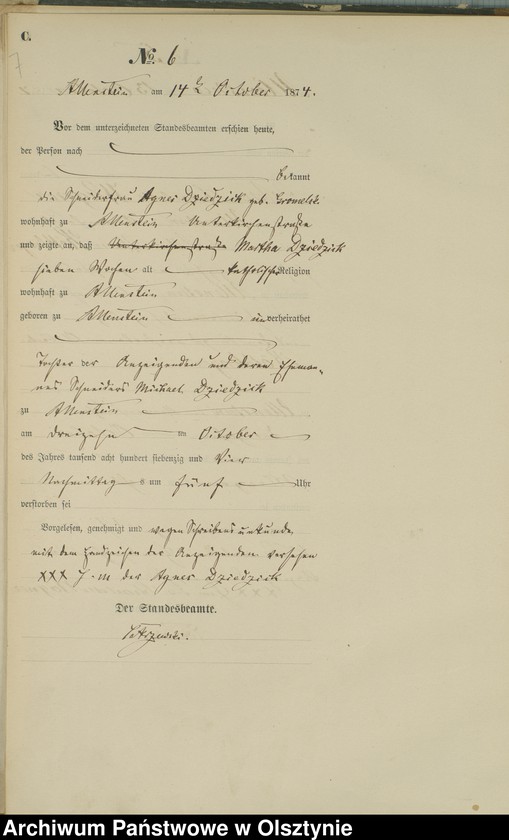 C.
7
No. 6
Allenstein am 14ten October 1874.
Vor dem unterzeichneten Standesbeamten erschien heute,
der Person nach
bekannt
die Schneiderfrau Agnes Dziedzick geb.
wohnhaft zu Allenstein Unterkirchenstraße
und zeigte an, daß Unterkirchenstraße Martha Dziedzick
sieben Wochen alt katholischer Religion
wohnhaft zu Allenstein
geboren zu Allenstein unverheirathet
Tochter der Anzeigenden und deren Eheman-
nes Schneiders Michael Dziedzick
zu Allenstein
am dreizehn ten October
des Jahres tausend acht hundert siebenzig und Vier
Nachmittag s um fünf Uhr
verstorben sei
Vorgelesen, genehmigt und wegen Schreibensunkunde
mit dem Handzeichen der Anzeigenden versehen
XXX der Agnes Dziedzick
Der Standesbeamte.
Archiwum Państwowe w Olsztynie